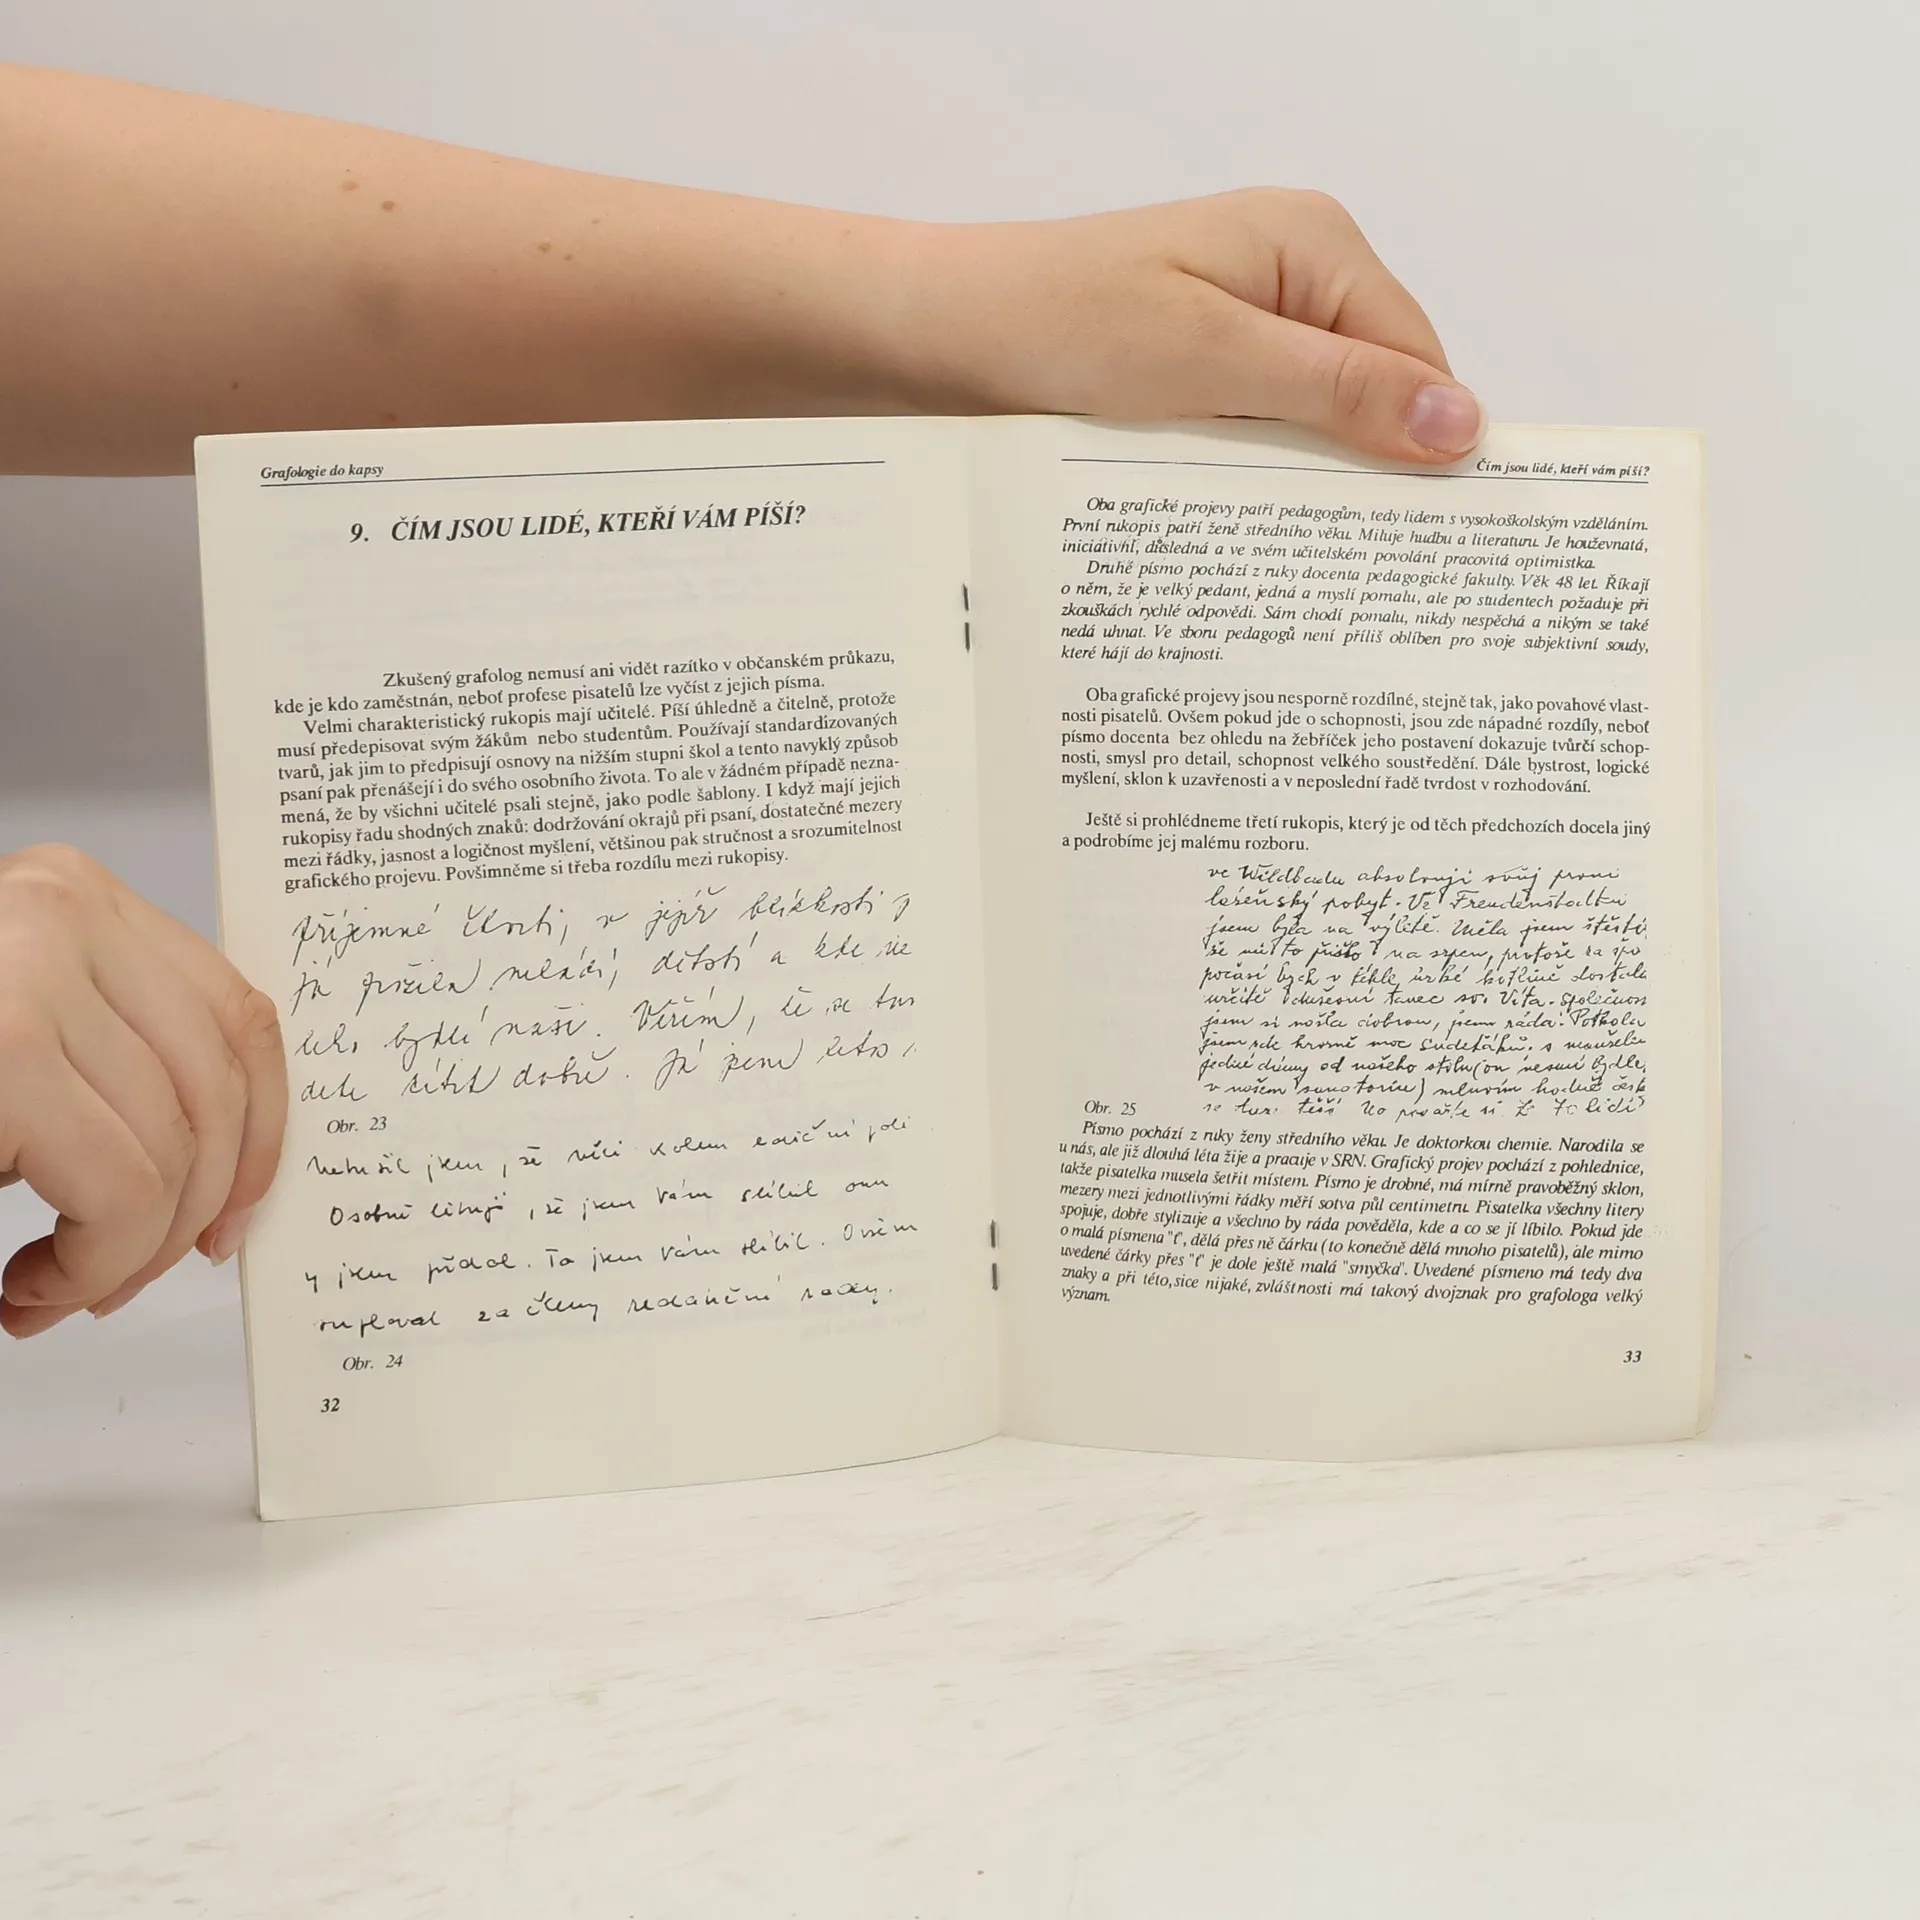 Grafologie do kapsy
9. ČÍM JSOU LIDÉ, KTEŘÍ VÁM PÍŠÍ?
Zkušený grafolog nemusí ani vidět razítko v občanském průkazu,
kde je kdo zaměstnán, neboť profese pisatelů lze vyčíst z jejich písma.
Velmi charakteristický rukopis mají učitelé. Píší úhledně a čitelně, protože
musí předepisovat svým žákům nebo studentům. Používají standardizovaných
tvarů, jak jim to předpisují osnovy na nižším stupni škol a tento navyklý způsob
psaní pak přenášejí i do svého osobního života. To ale v žádném případě nezna-
mená, že by všichni učitelé psali stejně, jako podle šablony. I když mají jejich
rukopisy řadu shodných znaků: dodržování okrajů při psaní, dostatečné mezery
mezi řádky, jasnost a logičnost myšlení, většinou pak stručnost a srozumitelnost
grafického projevu. Povšimněme si třeba rozdílu mezi rukopisy.
příjemné čtvrti, v jejíž blízkosti
já prožila mládí, dětství a kde
bydlí naši. Věřím, že se
dete cítit dobře. Já jsem letos
Obr. 23
Netušil jsem, že věci kolem ediční
Osobně lituji, že jsem Vám slíbil
jsem přidal. To jsem Vám slíbil. Ovšem
za členy redakční rady.
Obr. 24
32
Čím jsou lidé, kteří vám píší?
Oba grafické projevy patří pedagogům, tedy lidem s vysokoškolským vzděláním.
První rukopis patří ženě středního věku. Miluje hudbu a literaturu. Je houževnatá,
iniciativní, důsledná a ve svém učitelském povolání pracovitá optimistka.
Druhé písmo pochází z ruky docenta pedagogické fakulty. Věk 48 let. Říkají
o něm, že je velký pedant, jedná a myslí pomalu, ale po studentech požaduje při
zkouškách rychlé odpovědi. Sám chodí pomalu, nikdy nespěchá a nikým se také
nedá uhnat. Ve sboru pedagogů není příliš oblíben pro svoje subjektivní soudy,
které hájí do krajnosti.
Oba grafické projevy jsou nesporně rozdílné, stejně tak, jako povahové vlast-
nosti pisatelů. Ovšem pokud jde o schopnosti, jsou zde nápadné rozdíly, neboť
písmo docenta bez ohledu na žebříček jeho postavení dokazuje tvůrčí schop-
nosti, smysl pro detail, schopnost velkého soustředění. Dále bystrost, logické
myšlení, sklon k uzavřenosti a v neposlední řadě tvrdost v rozhodování.
Ještě si prohlédneme třetí rukopis, který je od těch předchozích docela jiný
a podrobíme jej malému rozboru.
ve Wildbadu absolvuji svůj první
lázeňský pobyt. Ve Freudenstadtu
jsem byla na výletě. Měla jsem štěstí,
že mi to přišlo na srpen, protože za
počasí bych v téhle úzké kotlině dostala
určitě tanec sv. Víta. Společnost
jsem si našla dobrou, jsem ráda. Potkala
jsem zde hrozně moc Sudeťáků. s manželem
jedné dámy od našeho stolu (on nesmí bydlet
v našem sanatoriu) mluvím hodně česk
se tuze těší. No považte si. Ze 70 lidí
Obr. 25
Písmo pochází z ruky ženy středního věku. Je doktorkou chemie. Narodila se
u nás, ale již dlouhá léta žije a pracuje v SRN. Grafický projev pochází z pohlednice,
takže pisatelka musela šetřit místem. Písmo je drobné, má mírně pravoběžný sklon,
mezery mezi jednotlivými řádky měří sotva půl centimetru. Pisatelka všechny litery
spojuje, dobře stylizuje a všechno by ráda pověděla, kde a co se jí líbilo. Pokud jde
o malá písmena "t", dělá přes ně čárku (to konečně dělá mnoho pisatelů), ale mimo
uvedené čárky přes "t" je dole ještě malá "smyčka". Uvedené písmeno má tedy dva
znaky a při této, sice nijaké, zvláštnosti má takový dvojznak pro grafologa velký
význam.
33